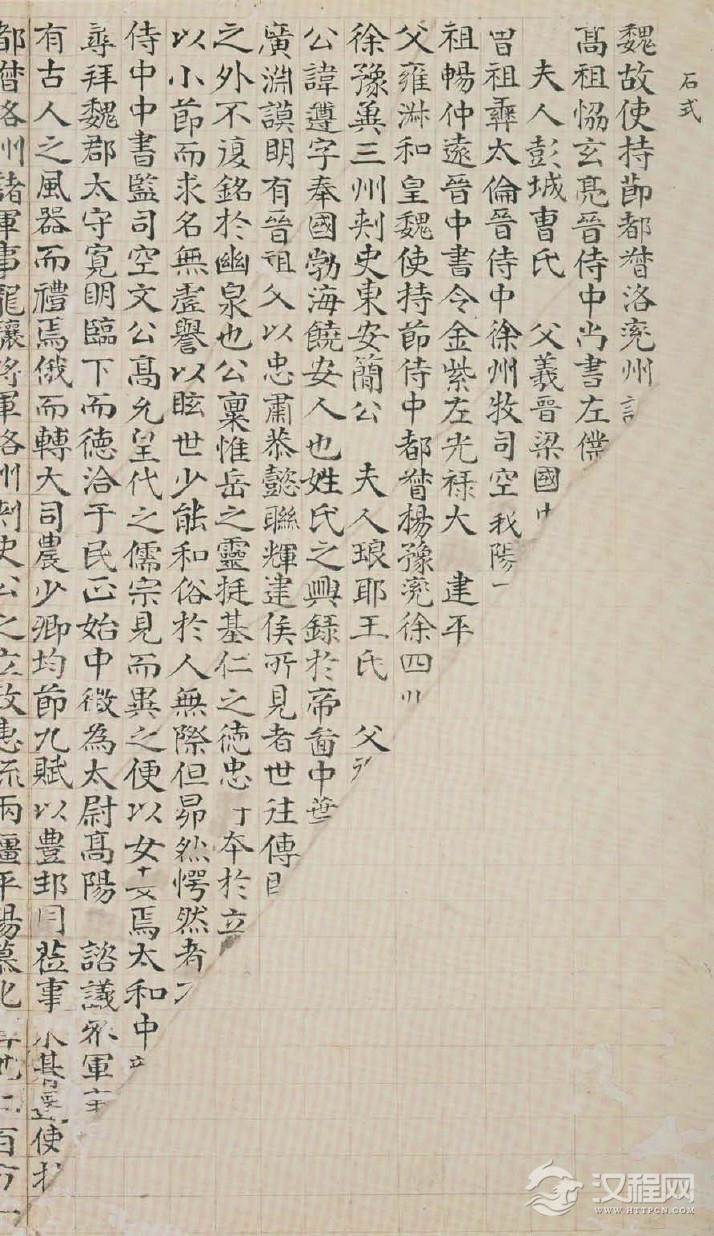 石式
魏故使持莭都督洛兖州
髙祖恊玄亮晉侍中尚書左僕
夫人彭城曺氏 父義晉梁國中
曽祖彝太倫晉侍中徐州牧司空義陽
祖暢仲遠晉中書令金紫左光祿大 建平
父雍淑和皇魏使持節侍中都督楊豫兖徐四
徐豫兾三州刾史東安簡公 夫人琅耶王氏 父
公諱遵字奉國勃海饒安人也姓氏之興録於帝啚中葉
廣淵謨明有晉祖父以忠肅恭懿聯輝建侯所見者世往傳
之外不復銘於幽泉也公稟惟岳之靈挺基仁之徳忠 本於立
以小節而求名無虚譽以眩世少能和俗於人無際但昂然愕然者
侍中中書監司空文公髙允皇代之儒宗見而異之便以女妻焉太和中
尋拜魏郡太守寛明臨下而德洽于民正始中徴為太尉髙陽 諮議參軍
有古人之風器而禮焉俄而轉大司農少卿均節九賦以豊邦用莅事 使
都督洛州諸軍事龍驤將軍洛州刾史公之立政惠流兩疆平陽慕化 百
汉程网
WWW.HTTPCN.COM